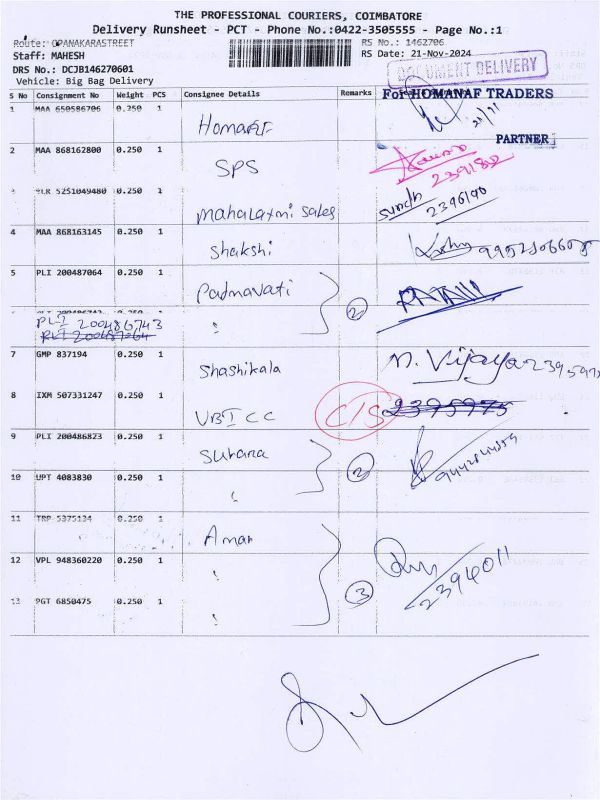 THE PROFESSIONAL COURIERS, COIMBATORE
Delivery Runsheet - PCT - Phone No.:0422-3505555 - Page No.:1
Route: OPANAKARASTREET
RS No.: 1462706
Staff: MAHESH
RS Date: 21-Nov-2024
DRS No.: DCJB146270601
Vehicle: Big Bag Delivery
DOCUMENT DELIVERY
S No Consignment No Weight PCS Consignee Details Remarks
For HOMANAF TRADERS
1 MAA 650586706 0.250 1
21/11
PARTNER
2 MAA 868162800 0.250 1 SPS
3 BLR 5251049480 0.250 1 Mahalaxmi Sales
4 MAA 868163145 0.250 1 Shakshi
5 PLI 200487064 0.250 1 Padmavati
2
PLI 200486743 "
PLI 200487064
7 GMP 837194 0.250 1 Shashikala N. Vijaya
8 IXM 507331247 0.250 1 UBI CC C/S 2395975
9 PLI 200486823 0.250 1 Suhara
2
10 UPT 4083830 0.250 1 "
11 TRP 5375134 0.250 1 Aman
12 VPL 948360220 0.250 1 "
2394011
3
13 PGT 6850475 0.250 1 "